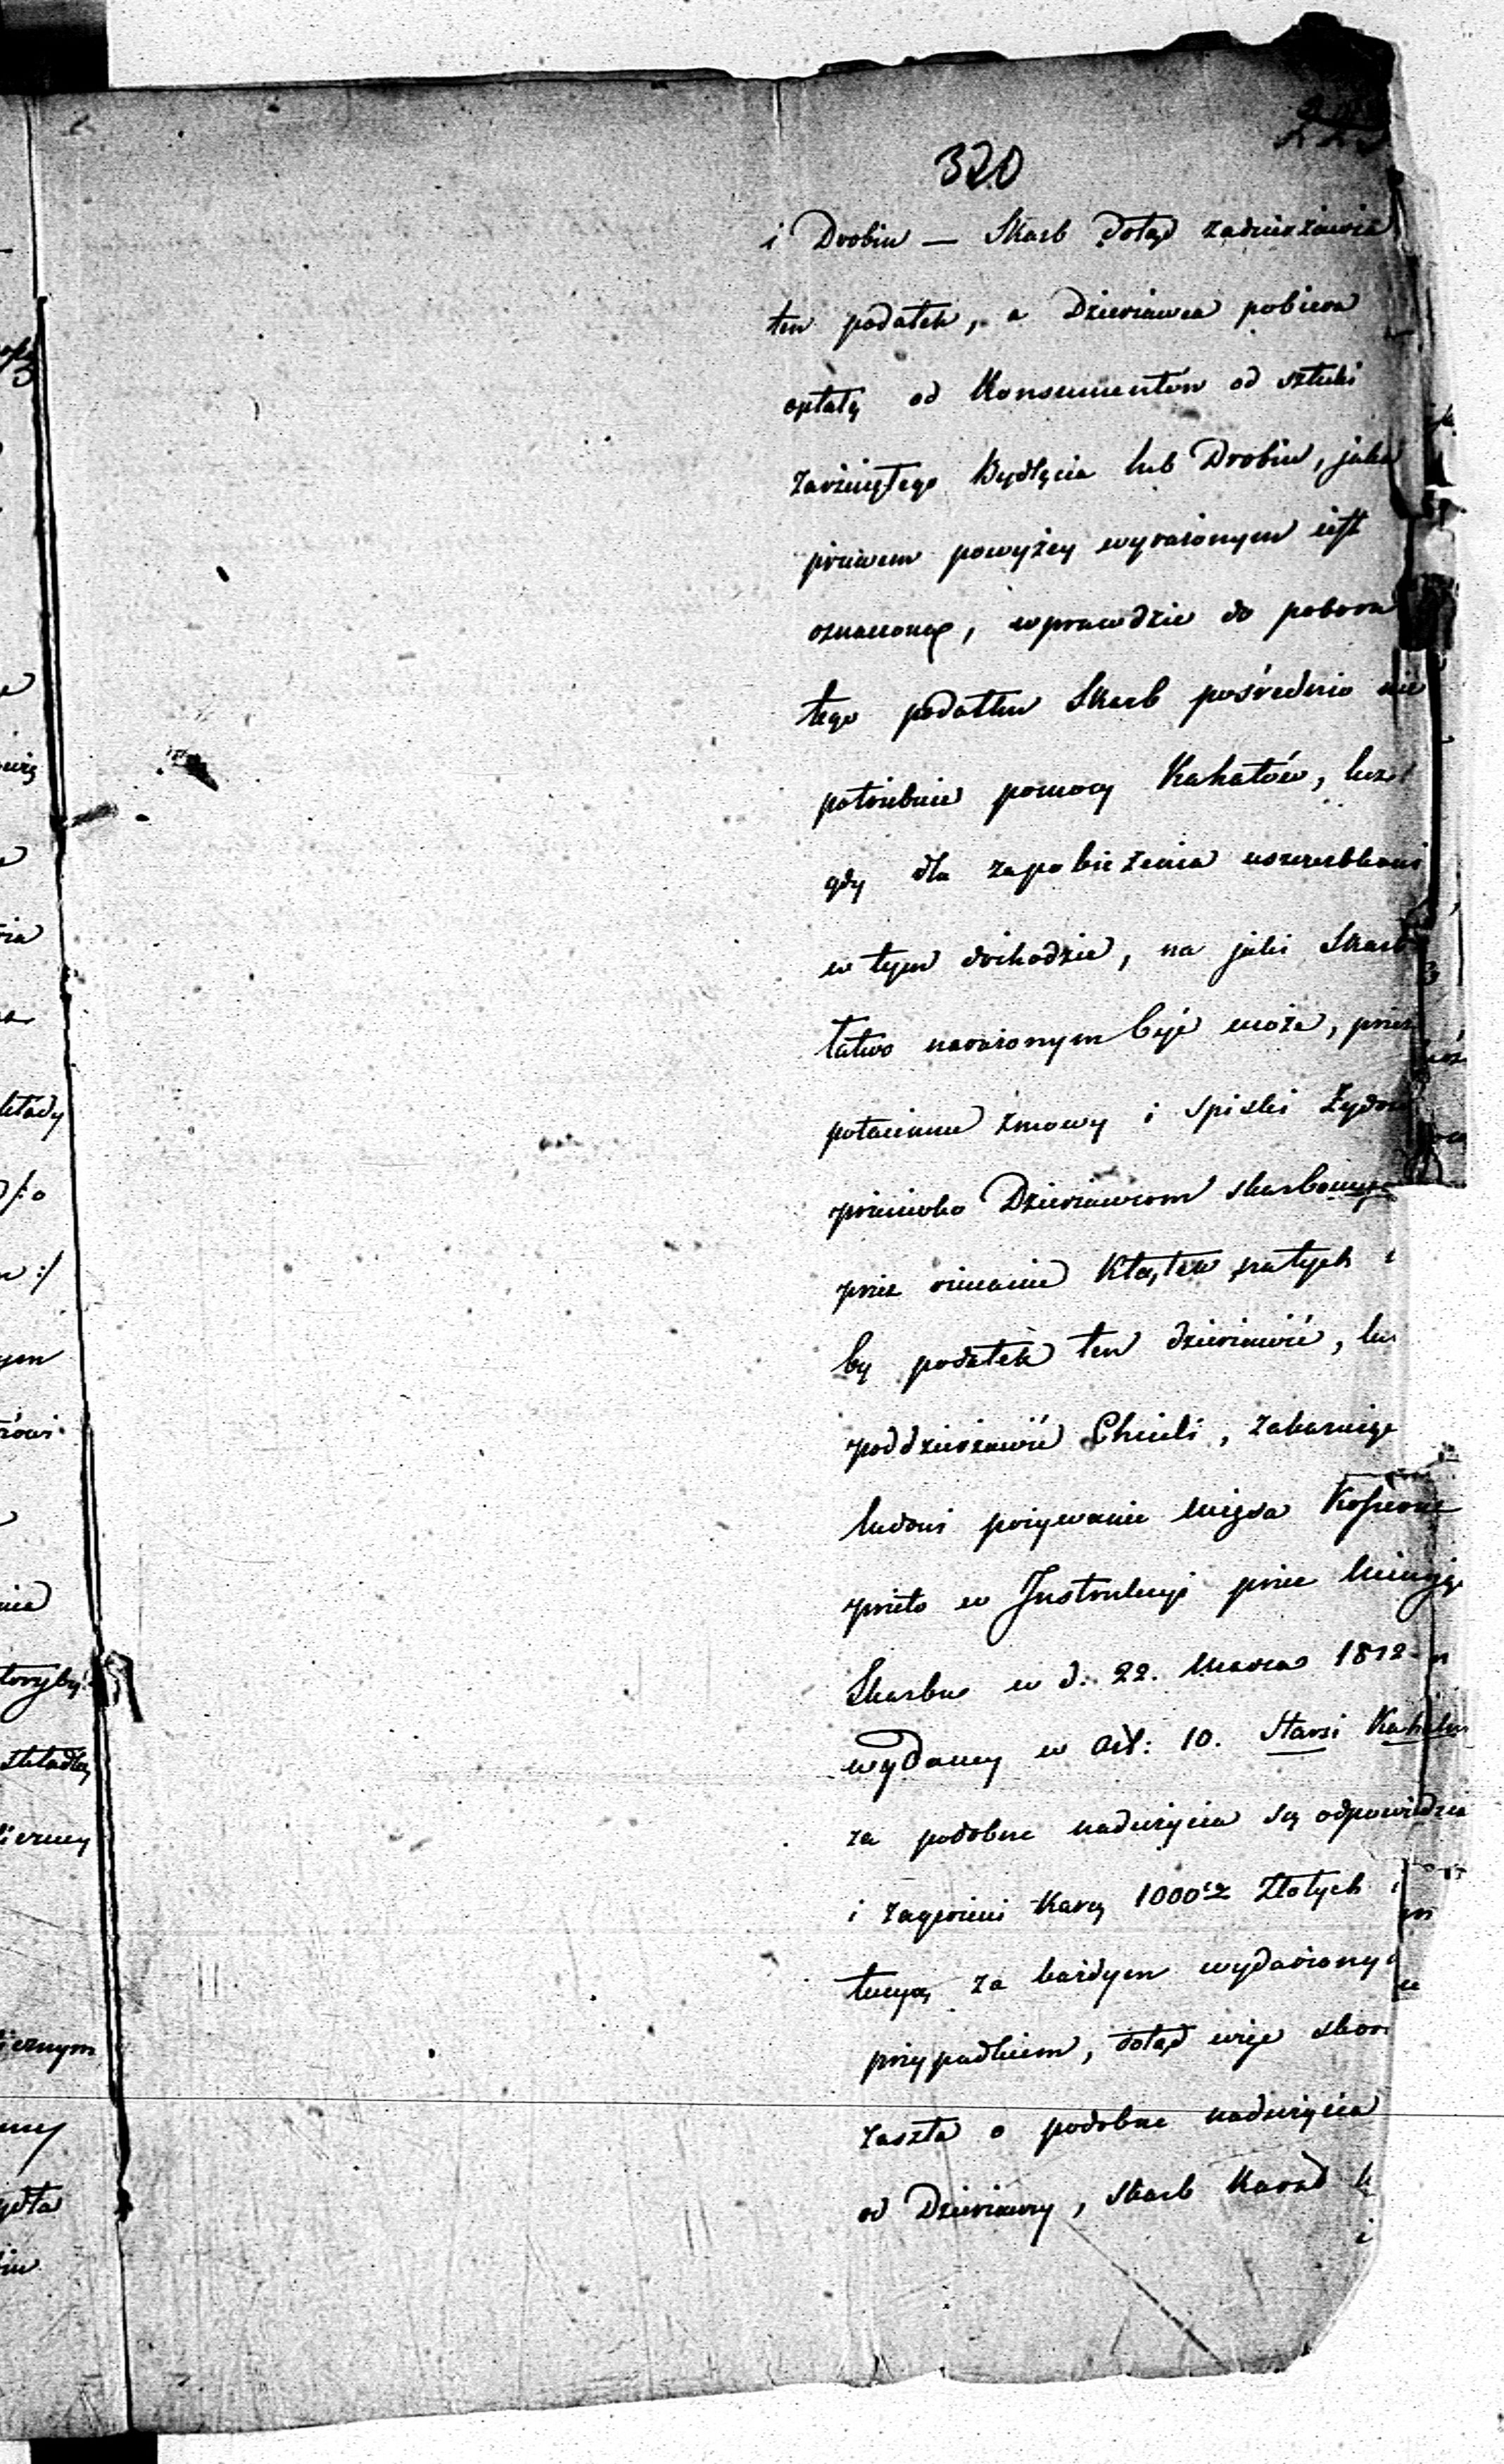 320
i Drobiu — Skarb dotąd zadzierżawia
ten podatek, a Dzierżawca pobiera
opłatę od Konsumentów od sztuki
zarżniętego Bydlęcia lub Drobiu, jaka
prawem powyżey wyrażonym iest
oznaczoną, wprawdzie do poboru
tego podatku Skarb pośrednio nie
potrzebuie pomocy Kahałów, lecz
gdy dla zapobieżenia uszczerbkowi
w tym dochodzie, na jaki Skarb
łatwo narażonym być może, przez
potaiemne zmowy i spiski Żydów
przeciwko Dzierżawcom skarbowym
przez rzucanie Klątew na tych
by podatek ten dzierżawić, lub
poddzierżawić Chcieli, zakazuiąc
ludowi pożywanie mięsa Koszerne
przeto w Instrukcyi przez
Skarbu w d. 22. Marca 1812
wydaney w Art: 10. Starsi Kahału
za podobne nadużycia są odpowiedzia
i zagrożeni Karą 1000 Złotych
za każdym wydarzonym
przypadkiem, dotąd więc skoro
zaszła o podobne nadużycia
od Dzierżawcy, Skarb Karał
i
kłady
ym
nia
składką
iernym
ydła